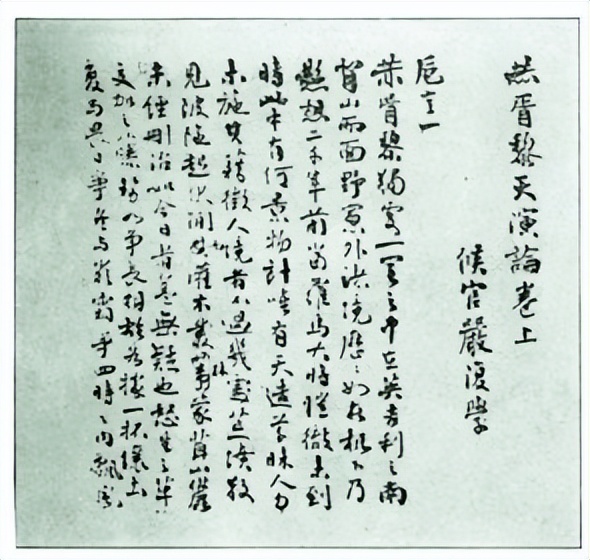 赫胥黎天演論卷上
候官嚴復學
卮言一
赫胥黎獨處一室之中在英吉利之南
背山而面野窗外諸境歷歷如在机下乃
懸想二千年前當羅馬大將愷徹未到
時此中有何景物計唯有天造草昧人力
未施其藉徵人境者不過幾處荒墳散
見陂陀起伏間而灌木叢林蒙茸山麓
未經刪治如今日者蓋無疑也怒生之草
交加之藤勢如爭長相雄各據一抔壤土
夏與畏日爭冬與嚴霜爭四時之內飄風